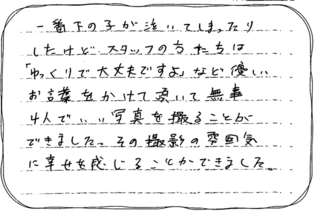 一番下の子が泣いてしまったり
したけど、スタッフの方たちは
「ゆっくりで大丈夫ですよ」など優しい
お言葉をかけて頂いて無事
4人でいい写真を撮ることが
できました。その撮影の雰囲気
に幸せを感じることができました。